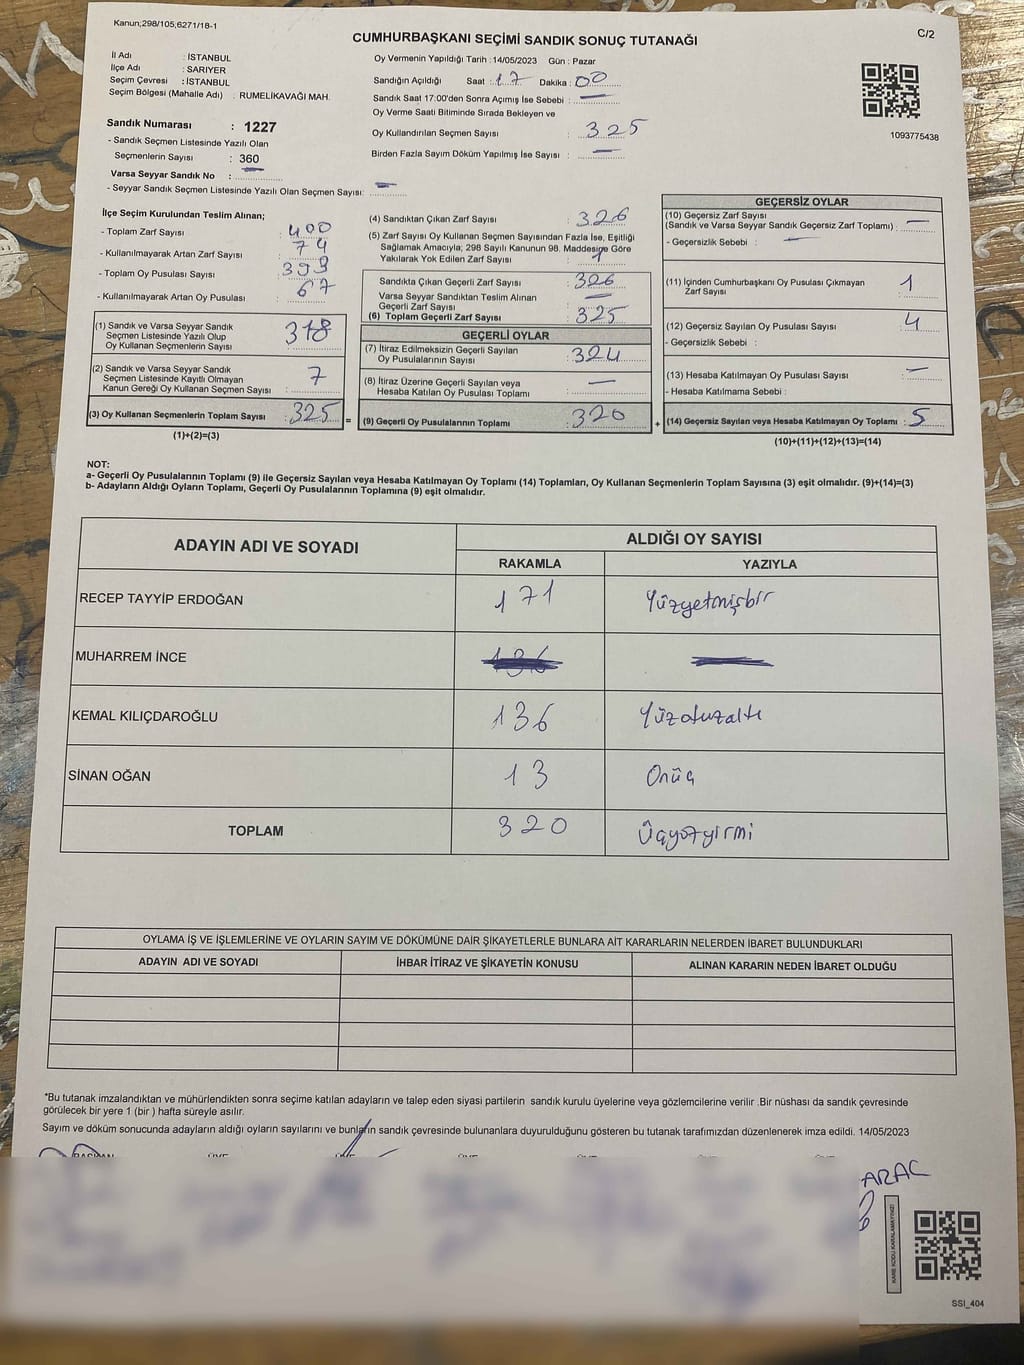 Kanun;298/105;6271/18-1
CUMHURBAŞKANI SEÇİMİ SANDIK SONUÇ TUTANAĞI
C/2
İl Adı : İSTANBUL
İlçe Adı : SARIYER
Seçim Çevresi : İSTANBUL
Seçim Bölgesi (Mahalle Adı) : RUMELİKAVAĞI MAH.
Sandık Numarası : 1227
- Sandık Seçmen Listesinde Yazılı Olan
Seçmenlerin Sayısı : 360
Varsa Seyyar Sandık No :
- Seyyar Sandık Seçmen Listesinde Yazılı Olan Seçmen Sayısı: —
Oy Vermenin Yapıldığı Tarih :14/05/2023 Gün : Pazar
Sandığın Açıldığı Saat : 17 Dakika : 00
Sandık Saat 17:00'den Sonra Açımış İse Sebebi : —
Oy Verme Saati Bitiminde Sırada Bekleyen ve
Oy Kullandırılan Seçmen Sayısı : 325
Birden Fazla Sayım Döküm Yapılmış İse Sayısı : —
1093775438
İlçe Seçim Kurulundan Teslim Alınan;
- Toplam Zarf Sayısı : 400
- Kullanılmayarak Artan Zarf Sayısı : 74
- Toplam Oy Pusulası Sayısı : 393
- Kullanılmayarak Artan Oy Pusulası : 67
(1) Sandık ve Varsa Seyyar Sandık
Seçmen Listesinde Yazılı Olup
Oy Kullanan Seçmenlerin Sayısı : 318
(2) Sandık ve Varsa Seyyar Sandık
Seçmen Listesinde Kayıtlı Olmayan
Kanun Gereği Oy Kullanan Seçmen Sayısı : 7
(3) Oy Kullanan Seçmenlerin Toplam Sayısı : 325 =
(1)+(2)=(3)
(4) Sandıktan Çıkan Zarf Sayısı : 326
(5) Zarf Sayısı Oy Kullanan Seçmen Sayısından Fazla İse, Eşitliği
Sağlamak Amacıyla; 298 Sayılı Kanunun 98. Maddesine Göre
Yakılarak Yok Edilen Zarf Sayısı : 1
Sandıkta Çıkan Geçerli Zarf Sayısı : 326
Varsa Seyyar Sandıktan Teslim Alınan
Geçerli Zarf Sayısı : —
(6) Toplam Geçerli Zarf Sayısı : 325
GEÇERLİ OYLAR
(7) İtiraz Edilmeksizin Geçerli Sayılan
Oy Pusulalarının Sayısı : 324
(8) İtiraz Üzerine Geçerli Sayılan veya
Hesaba Katılan Oy Pusulası Toplamı : —
(9) Geçerli Oy Pusulalarının Toplamı : 320 +
GEÇERSİZ OYLAR
(10) Geçersiz Zarf Sayısı
(Sandık ve Varsa Seyyar Sandık Geçersiz Zarf Toplamı) : —
- Geçersizlik Sebebi : —
(11) İçinden Cumhurbaşkanı Oy Pusulası Çıkmayan
Zarf Sayısı : 1
(12) Geçersiz Sayılan Oy Pusulası Sayısı : 4
- Geçersizlik Sebebi :
(13) Hesaba Katılmayan Oy Pusulası Sayısı : —
- Hesaba Katılmama Sebebi :
(14) Geçersiz Sayılan veya Hesaba Katılmayan Oy Toplamı : 5
(10)+(11)+(12)+(13)=(14)
NOT:
a- Geçerli Oy Pusulalarının Toplamı (9) ile Geçersiz Sayılan veya Hesaba Katılmayan Oy Toplamı (14) Toplamları, Oy Kullanan Seçmenlerin Toplam Sayısına (3) eşit olmalıdır. (9)+(14)=(3)
b- Adayların Aldığı Oyların Toplamı, Geçerli Oy Pusulalarının Toplamına (9) eşit olmalıdır.
ADAYIN ADI VE SOYADI ALDIĞI OY SAYISI
RAKAMLA YAZIYLA
RECEP TAYYİP ERDOĞAN 171 Yüzyetmişbir
MUHARREM İNCE
KEMAL KILIÇDAROĞLU 136 Yüzotuzaltı
SİNAN OĞAN 13 Onüç
TOPLAM 320 Üçyüzyirmi
OYLAMA İŞ VE İŞLEMLERİNE VE OYLARIN SAYIM VE DÖKÜMÜNE DAİR ŞİKAYETLERLE BUNLARA AİT KARARLARIN NELERDEN İBARET BULUNDUKLARI
ADAYIN ADI VE SOYADI İHBAR İTİRAZ VE ŞİKAYETİN KONUSU ALINAN KARARIN NEDEN İBARET OLDUĞU
*Bu tutanak imzalandıktan ve mühürlendikten sonra seçime katılan adayların ve talep eden siyasi partilerin sandık kurulu üyelerine veya gözlemcilerine verilir .Bir nüshası da sandık çevresinde
görülecek bir yere 1 (bir ) hafta süreyle asılır.
Sayım ve döküm sonucunda adayların aldığı oyların sayılarını ve bunların sandık çevresinde bulunanlara duyurulduğunu gösteren bu tutanak tarafımızdan düzenlenerek imza edildi. 14/05/2023
BAŞKAN ÜYE ÜYE ÜYE ÜYE ÜYE ÜYE
ARAC
KARE KODU KARALAMAYINIZ!
SSI_404